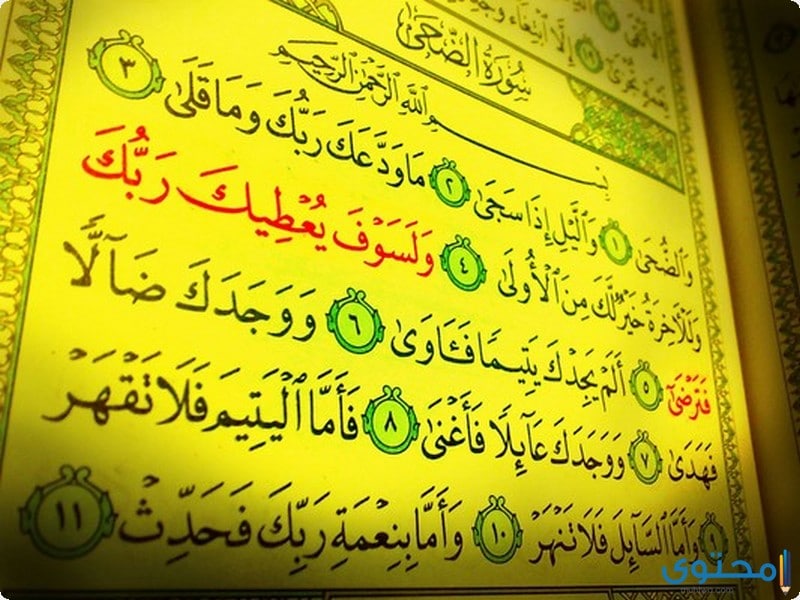 سُورَةُ الضُّحَىٰ
بِسْمِ ٱللَّهِ ٱلرَّحْمَٰنِ ٱلرَّحِيمِ
وَٱلضُّحَىٰ ١ وَٱلَّيْلِ إِذَا سَجَىٰ ٢ مَا وَدَّعَكَ رَبُّكَ وَمَا قَلَىٰ ٣
وَلَلْءَاخِرَةُ خَيْرٌ لَّكَ مِنَ ٱلْأُولَىٰ ٤ وَلَسَوْفَ يُعْطِيكَ رَبُّكَ
فَتَرْضَىٰٓ ٥ أَلَمْ يَجِدْكَ يَتِيمًا فَـَٔاوَىٰ ٦ وَوَجَدَكَ ضَآلًّا
فَهَدَىٰ ٧ وَوَجَدَكَ عَآئِلًا فَأَغْنَىٰ ٨ فَأَمَّا ٱلْيَتِيمَ فَلَا تَقْهَرْ
٩ وَأَمَّا ٱلسَّآئِلَ فَلَا تَنْهَرْ ١٠ وَأَمَّا بِنِعْمَةِ رَبِّكَ فَحَدِّثْ ١١
محتوى